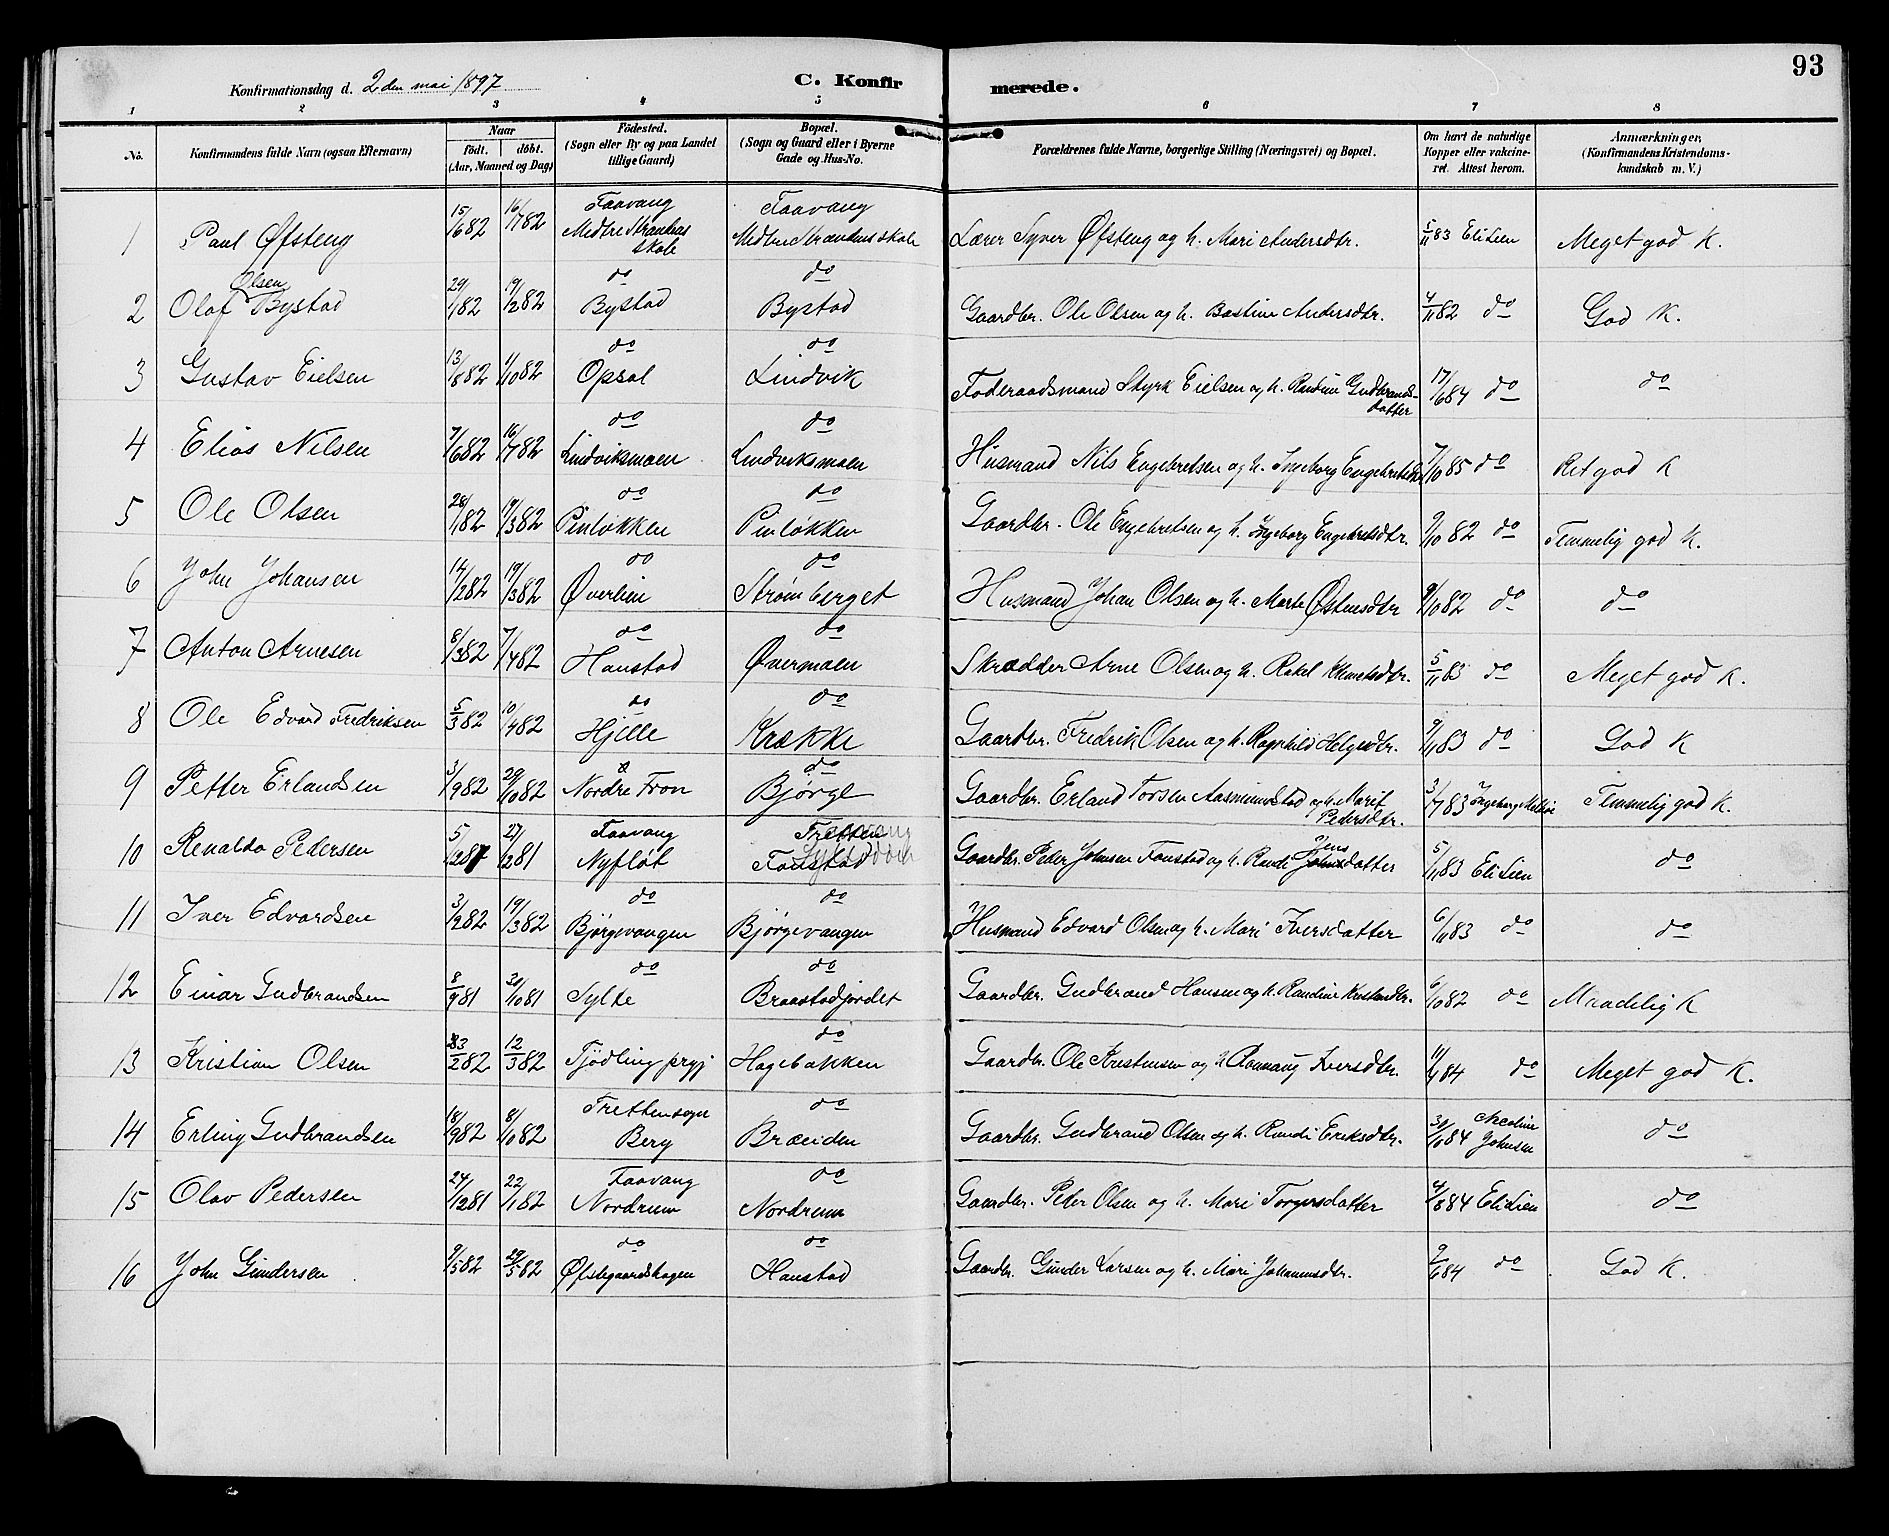 93
Konfirmationsdag d. 2den mai 1897
C. Konfirmerede.
1 2 3 4 5 6 7 8
No. Konfirmandens fulde Navn (ogsaa Efternavn) Naar födt. döbt. (Aar, Maaned og Dag) Födested. (Sogn eller By og paa Landet tillige Gaard) Bopæl. (Sogn og Gaard eller i Byerne Gade og Hus-No. Forældrenes fulde Navne, borgerlige Stilling (Næringsvei) og Bopæl. Om havt de naturlige Kopper eller vakcineret. Attest herom. Anmærkninger, (Konfirmandens Kristendomskundskab m. V.)
1 Paul Øfsteng 15/6 82 16/7 82 Faavang Medtre Strandens skole Faavang Medtre Strandens skole Lærer Syver Øfsteng og h. Mari Andersdtr. 5/11 83 Eli Lien Meget god K.
2 Olaf Olsen Bystad 29/1 82 19/2 82 do Bystad do Bystad Gaardbr. Ole Olsen og h. Bastine Andersdtr. 4/11 82 do God K.
3 Gustav Eielsen 13/8 82 1/10 82 do Opsal do Lindvik Foderaadsmand Styrk Eielsen og h. Randine Gudbrandsdatter 17/6 84 do do
4 Elias Nilsen 7/6 82 16/7 82 do Lindviksmoen do Lindviksmoen Husmand Nils Engebretsen og h. Ingeborg Engebretsdtr 7/10 85 do Ret god K
5 Ole Olsen 28/1 82 19/3 82 do Pinløkken do Pinløkken Gaardbr. Ole Engebretsen og h. Ingeborg Engebretsdtr. 9/10 82 do Temmelig god K.
6 John Johansen 14/2 82 19/3 82 do Øverlien do Strømberget Husmand Johan Olsen og h. Marte Østensdtr 9/10 82 do do
7 Anton Arnesen 8/3 82 7/4 82 do Hanstad do Øvermoen Skrædder Arne Olsen og h. Rakel Klmetsdtr. 5/11 83 do Meget god K.
8 Ole Edvard Fredriksen 5/3 82 10/4 82 do Hjelle do Krække Gaardbr. Fredrik Olsen og h. Ragnhild Helgesdtr. 9/11 83 do God K
9 Petter Erlandsen 3/9 82 29/10 82 Nordre Fron do Bjørge Gaardbr. Erland Torsen Aasmundstad og h. Marit Pedersdtr. 3/7 83 Ingeborg Temmelig god K.
10 Renaldo Pedersen 5/12 81 27/12 81 Faavang Nyfløt Fretten Fonstad Gaardbr. Peder Johnsen Fonstad og h. Randi Jensdatter 5/11 83 Eli Lien do
11 Iver Edvardsen 3/2 82 19/3 82 do Bjørgevangen do Bjørgevangen Husmand Edvard Olsen og h. Mari Iversdatter 6/11 83 do do
12 Einar Gudbrandsen 8/9 81 30/10 81 do Sylte do Braastadjordet Gaardbr. Gudbrand Hansen og h. Randine Kristensdtr. 6/10 82 do Maadelig K
13 Kristian Olsen 23/2 82 12/3 82 Tjödling prgj do Hagebakken Gaardbr. Ole Kristensen og h Rønnaug Iversdtr. 11/9 84 do Meget god K.
14 Erling Gudbrandsen 18/9 82 8/10 82 Frettensogn Berg do Bræiden Gaardbr. Gudbrand Olsen og h. Randi Eriksdtr. 31/10 84 Johnsen do
15 Olav Pedersen 24/12 81 22/1 82 Faavang Nordrum do Nordrum Gaardbr. Peder Olsen og h. Mari Torgersdatter 4/8 84 Eli Lien do
16 John Gundersen 9/5 82 29/5 82 do Øfstegaardshagen do Hanstad Gaardbr. Gunder Larsen og h. Mari Johannesdtr. 9/6 84 do God K.